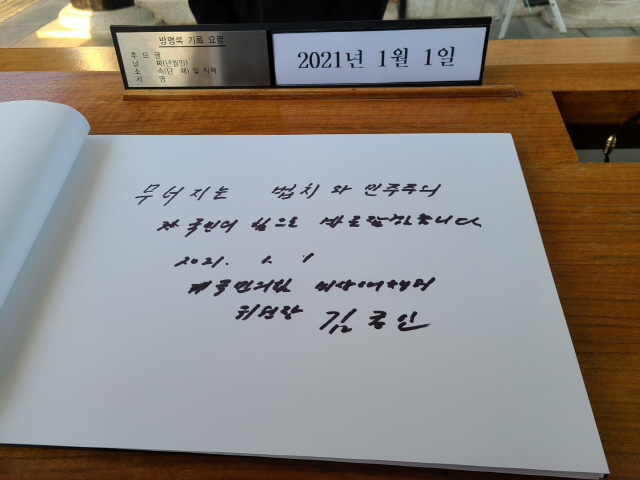 방명록 기록 요령
추 모 글
날 짜(년월일)
소 속(단 체) 및 직책
서 명
2021년 1월 1일
무너지는 법치와 민주주의
국민의 힘으로 바로잡겠습니다
2021. 1. 1
국민의힘 비상대책위
위원장 김종인